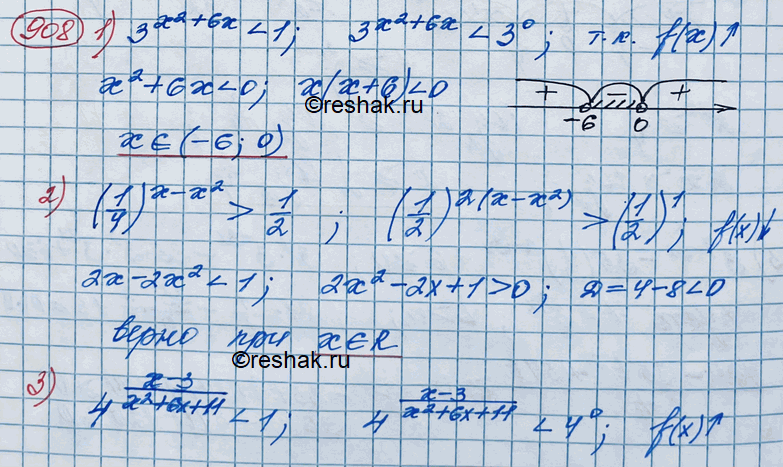 908 1) 3^(x²+6x) < 1; 3^(x²+6x) < 3⁰; т.к. f(x)↑
x²+6x<0; x(x+6)<0 + − +
©reshak.ru
−6 0
x ∈ (−6; 0)
2) (1/4)^(x−x²) > 1/2 ; (1/2)^(2(x−x²)) > (1/2)¹; f(x)↓
2x−2x² < 1; 2x²−2x+1>0; D=4−8<0
верно при x∈R
©reshak.ru
3) 4^((x−3)/(x²+6x+11)) < 1; 4^((x−3)/(x²+6x+11)) < 4⁰; f(x)↑